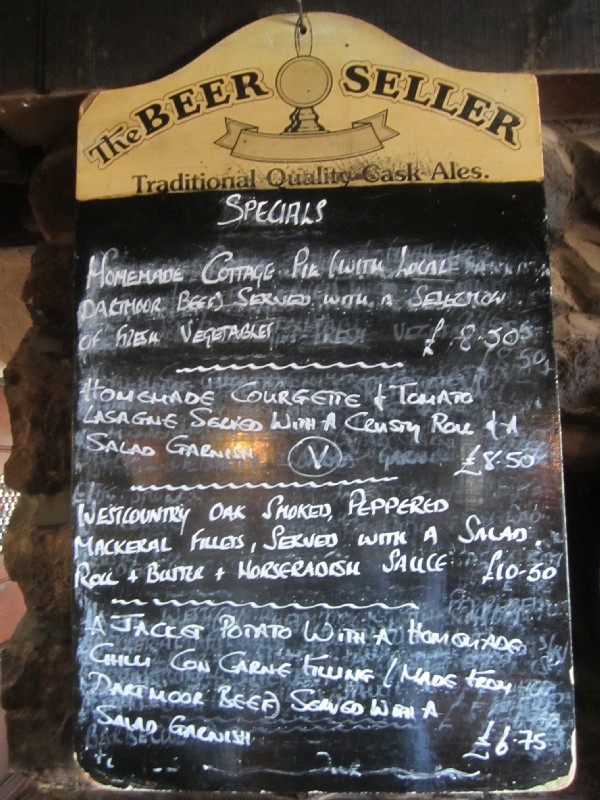 The BEER SELLER
Traditional Quality Cask Ales.
SPECIALS
HOMEMADE COTTAGE PIE (WITH LOCAL
DARTMOOR BEEF) SERVED WITH A SELECTION
OF FRESH VEGETABLES £8.50
HOMEMADE COURGETTE & TOMATO
LASAGNE SERVED WITH A CRUSTY ROLL & A
SALAD GARNISH V £8.50
WESTCOUNTRY OAK SMOKED, PEPPERED
MACKERAL FILLETS, SERVED WITH A SALAD.
ROLL + BUTTER + HORSERADISH SAUCE £10-50
A JACKET POTATO WITH A HOMEMADE
CHILLI CON CARNE FILLING (MADE FROM
DARTMOOR BEEF) SERVED WITH A
SALAD GARNISH £6.75